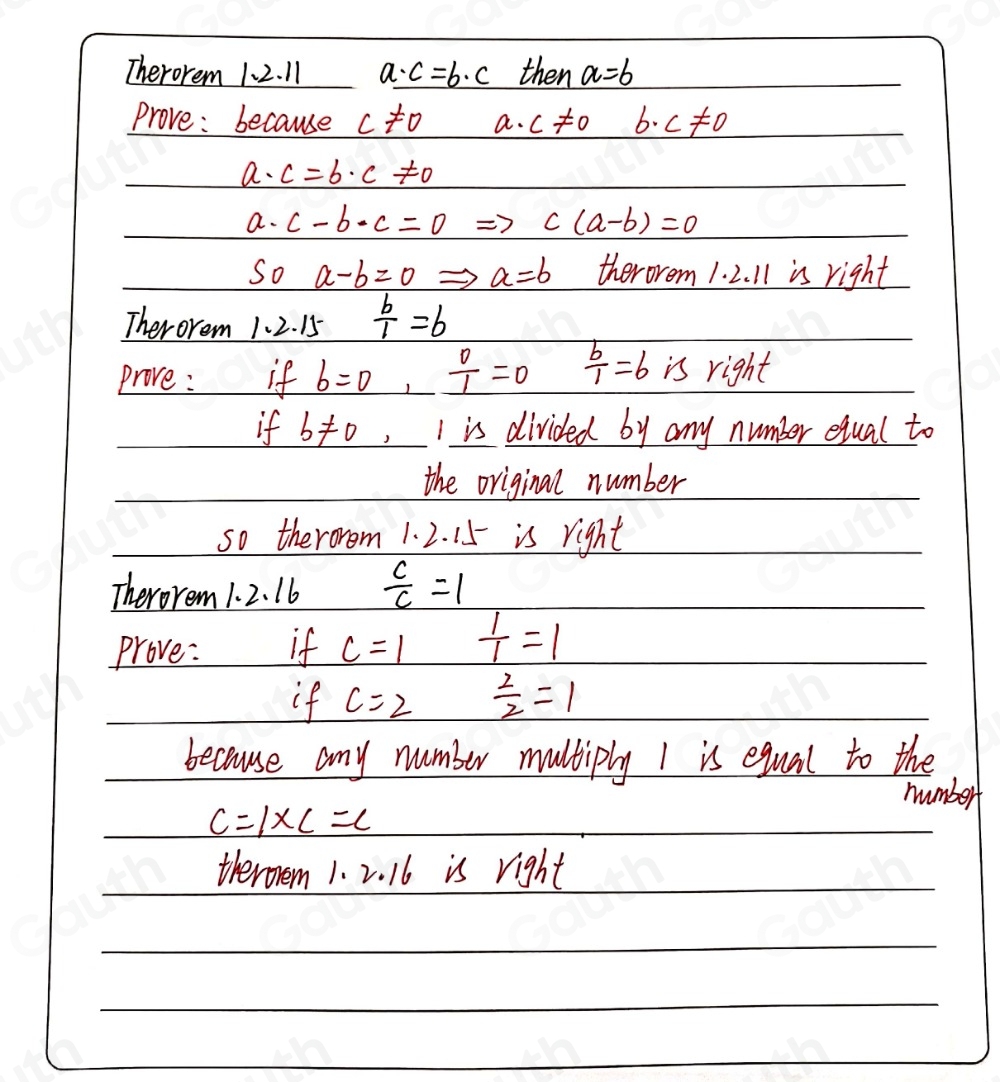 Therorem 1.2.11 a·c=b·c then a=b
Prove: because c≠0 a·c≠0 b·c≠0
a·c=b·c≠0
a·c-b·c=0 => c(a-b)=0
So a-b=0 => a=b therorem 1.2.11 is right
Therorem 1.2.15 b/1=b
prove: if b=0, 0/1=0 b/1=b is right
if b≠0, 1 is divided by any number equal to
the original number
so therorem 1.2.15 is right
Therorem 1.2.16 c/c=1
prove: if c=1 1/1=1
if c=2 2/2=1
because any number multiply 1 is equal to the
number
c=1×c=c
therorem 1.2.16 is right